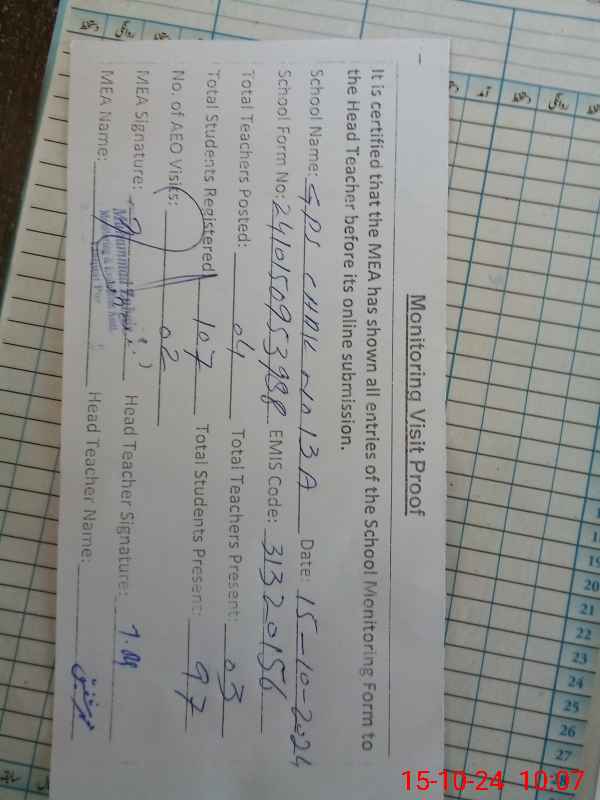 Monitoring Visit Proof
It is certified that the MEA has shown all entries of the School Monitoring Form to
the Head Teacher before its online submission.
School Name: GPS CHAK NO 13 A Date: 15-10-2024
School Form No: 2410150953988 EMIS Code: 31320156
Total Teachers Posted: 04 Total Teachers Present: 03
Total Students Registered 107 Total Students Present: 97
No. of AEO Visits: 02
MEA Signature: Head Teacher Signature:
MEA Name: Muhammad Head Teacher Name:
18
19
20
21
22
23
24
25
26
27
28
15-10-24 10:07